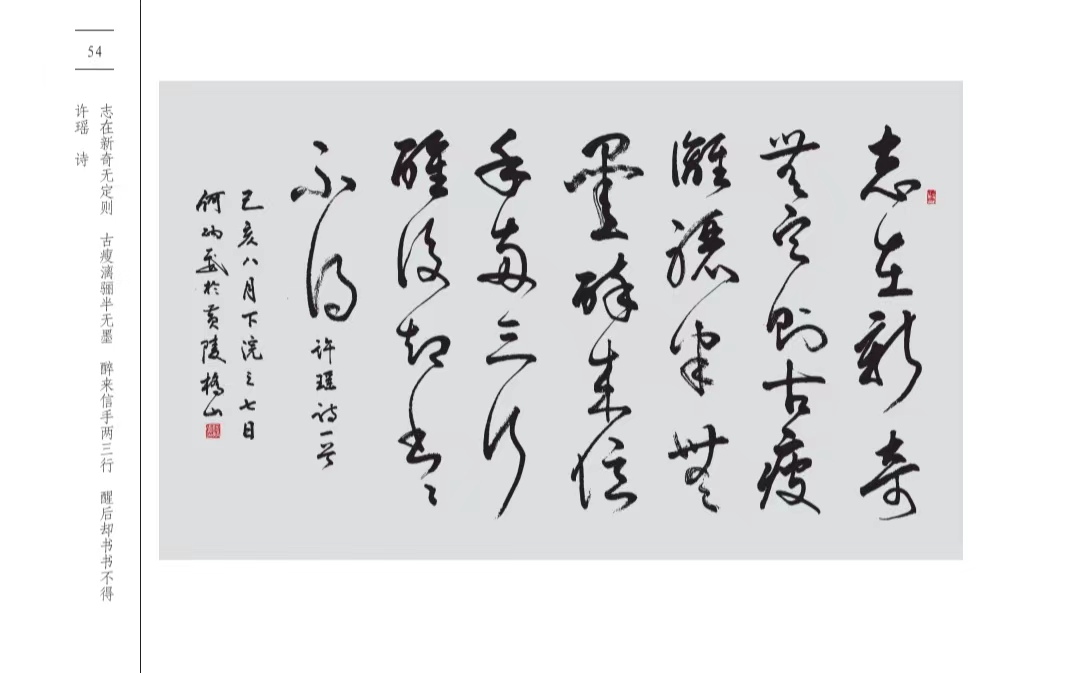 54
志在新奇无定则 古瘦漓骊半无墨 醉来信手两三行 醒后却书书不得
许瑶 诗
志在新奇
無定則古瘦
灕驪半無
墨醉来信
手两三行
醒後却书〻
不得
许瑶诗一首
己亥八月下浣之七日
何炳武於黄陵橋山